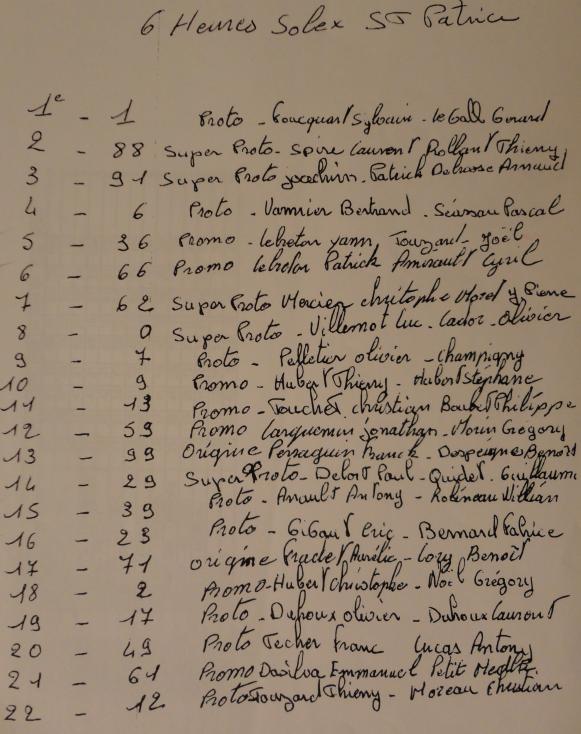 6 Heures Solex ST Patrice
1e - 1 Proto - Foucquart Sylvain - le Gall Gerard
2 - 88 Super Proto - Spire Laurent Rolland Thierry
3 - 91 Super Proto joachim - Patrick Delrosse Arnaud
4 - 6 Proto - Vannier Bertrand - Pascal
5 - 36 Promo - lebreton yann Touzard - Joël
6 - 66 Promo lebreton Patrick Amirault Cyril
7 - 62 Super Proto Mercier christophe Morel y Pierre
8 - 0 Super Proto - Villemot luc - Cador - Olivier
9 - 7 Proto - Pelletier olivier - champigny
10 - 9 Promo - Hubert Thierry - Hubert Stéphane
11 - 13 Promo - Touchet christian Philippe
12 - 59 Promo jonathan - Morin Grégory
13 - 99 Origine Franck - Benoit
14 - 29 Super Proto - Delort Paul - Quidet - Guillaume
15 - 39 Proto - Arrault Antony - Robineau William
16 - 23 Proto - Gibaut Eric - Bernard Fabrice
17 - 71 origine Aurélie - Lory Benoît
18 - 2 Promo - Hubert Christophe - Noël Grégory
19 - 17 Proto - Duhoux olivier - Duhoux Laurent
20 - 49 Proto Techer Franc Lucas Antony
21 - 61 Promo Dasilva Emmanuel Petit
22 - 12 Proto Touzard Thierry - Moreau Christian